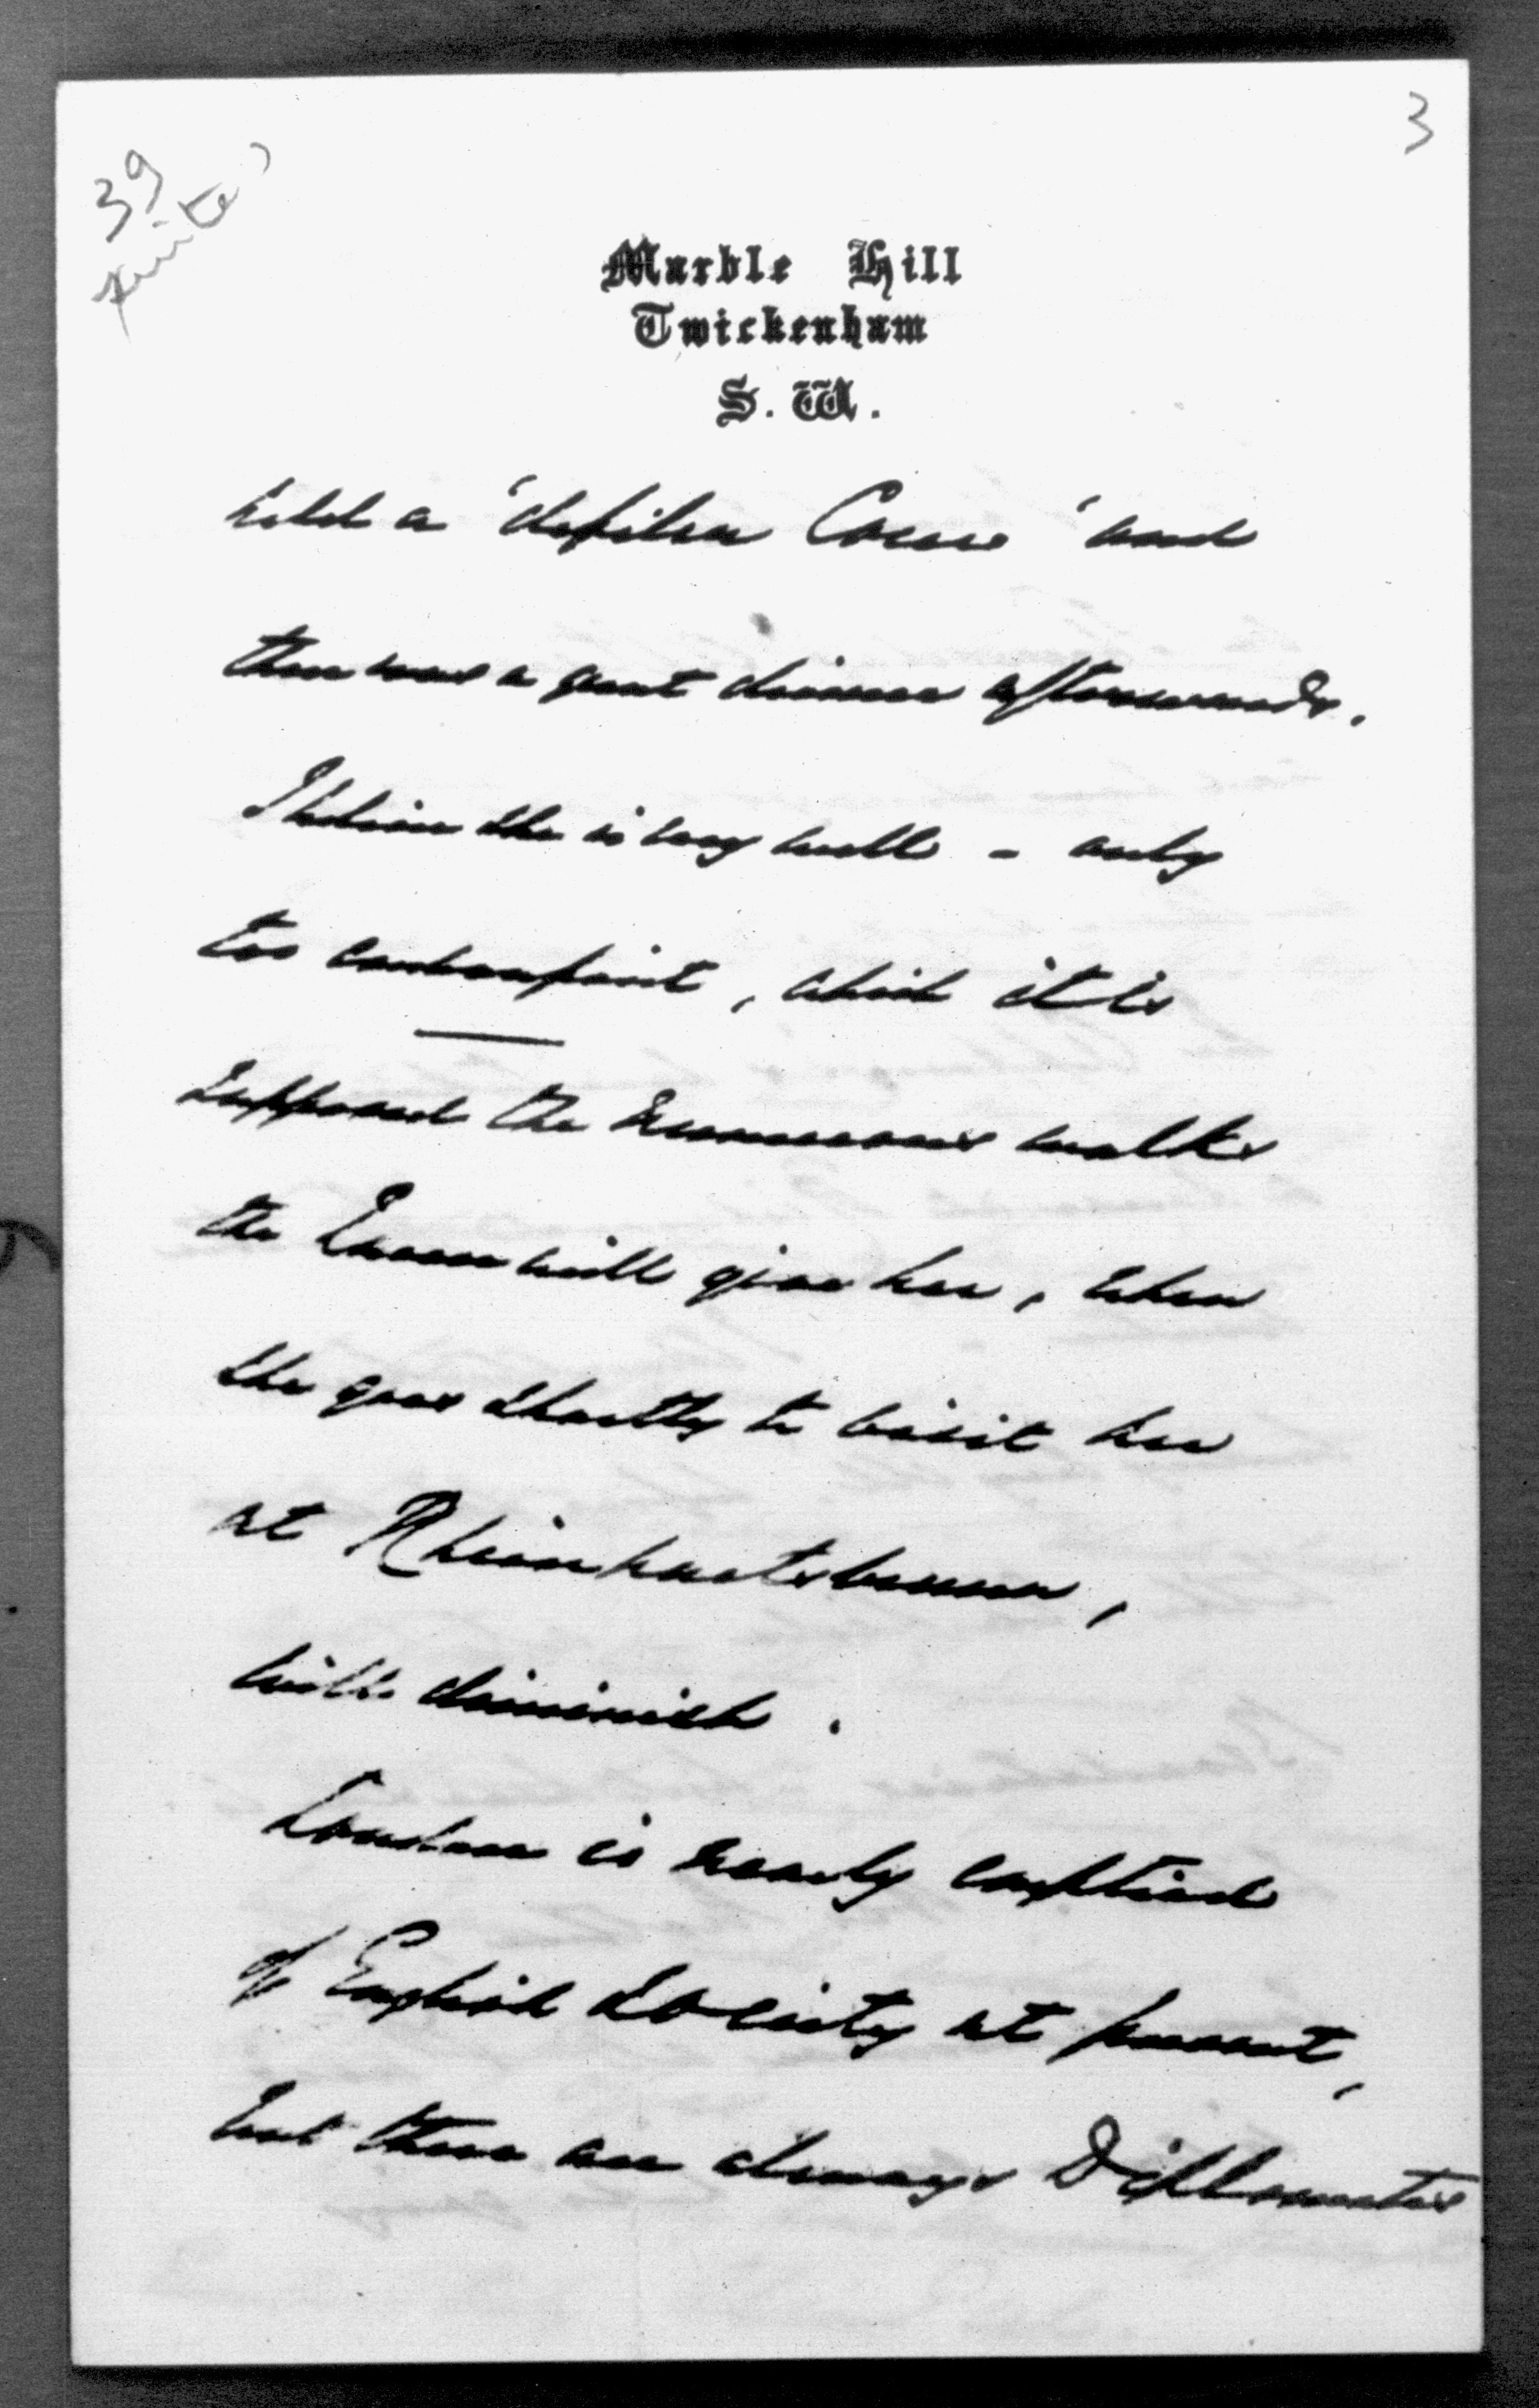 3
39
(suite)
Marble Hill
Twickenham
S. W.
held a 'defilier Cour' and
there was a great dinner afterwards.
I believe she is very well - only
too embonpoint, which it is
supposed the numerous walks
the Queen will give her, when
she goes shortly to visit her
at Rheinhartsbrunn,
will diminish.
London is nearly emptied
of English society at present,
but there are always Diplomates